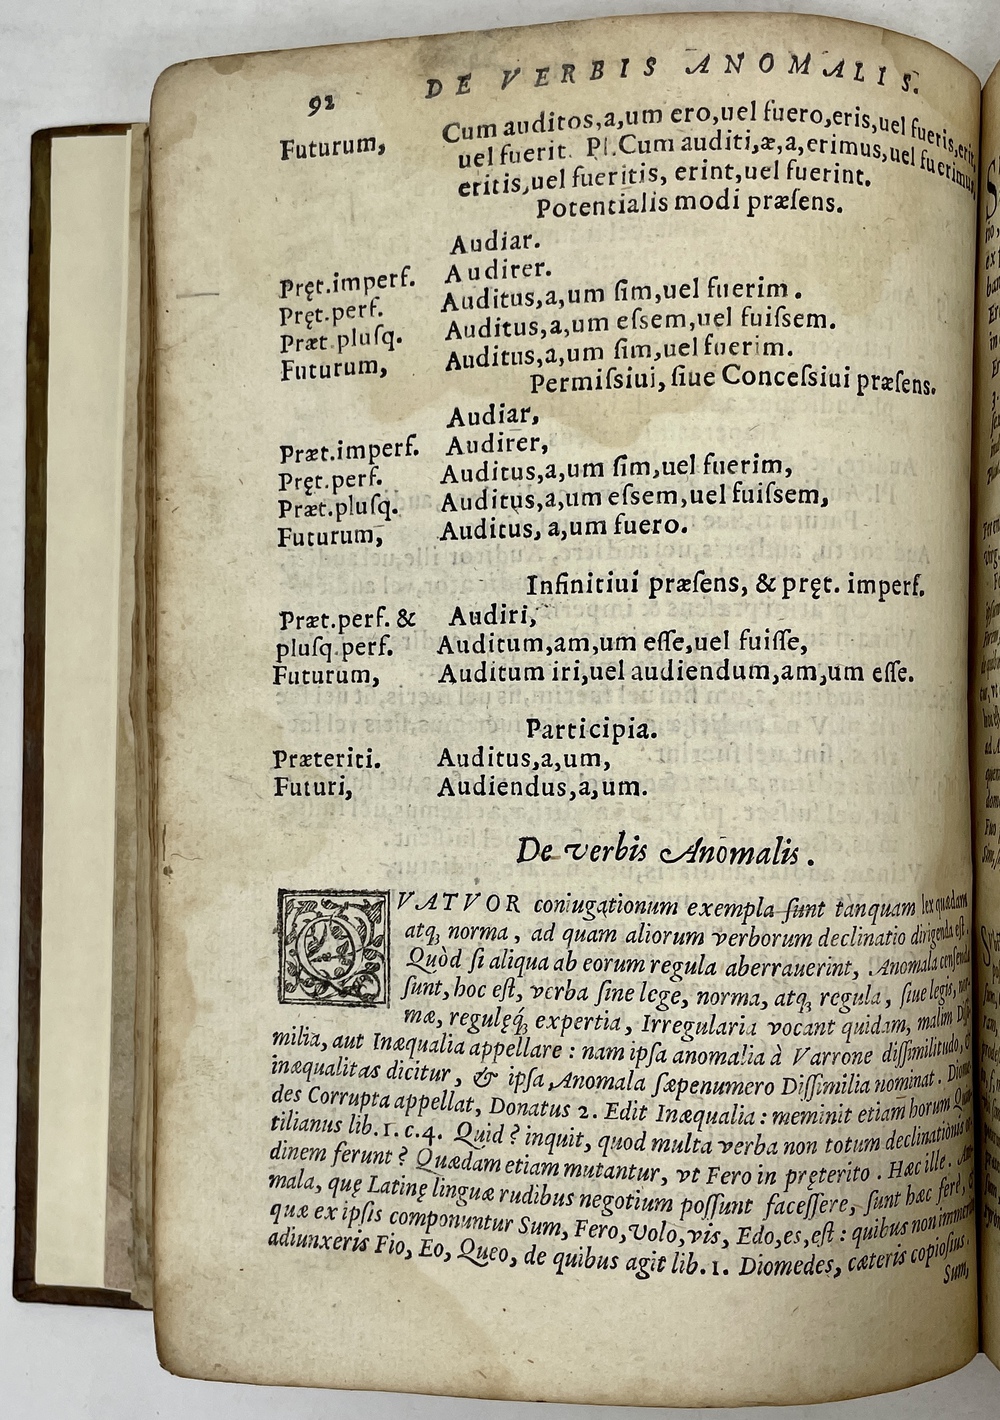 92 DE VERBIS ANOMALIS.
Futurum, Cum auditos,a,um ero,uel fuero,eris,uel fueris,erit,
uel fuerit. Pl.Cum auditi,æ,a,erimus,uel fuerimus,
eritis,uel fueritis, erint,uel fuerint.
Potentialis modi præſens.
Audiar.
Pręt.imperf. Audirer.
Pręt.perf. Auditus,a,um ſim,uel fuerim.
Præt.pluſq. Auditus,a,um eſsem,uel fuiſsem.
Futurum, Auditus,a,um ſim,uel fuerim.
Permiſsiui, ſiue Conceſsiui præſens.
Audiar,
Præt.imperf. Audirer,
Pręt.perf. Auditus,a,um ſim,uel fuerim,
Præt.pluſq. Auditus,a,um eſsem,uel fuiſsem,
Futurum, Auditus, a,um fuero.
Infinitiui præſens, & pręt. imperf.
Præt.perf. & Audiri,
pluſq.perf. Auditum,am,um eſſe,uel fuiſſe,
Futurum, Auditum iri,uel audiendum,am,um eſſe.
Participia.
Præteriti. Auditus,a,um,
Futuri, Audiendus,a,um.
De verbis Anomalis.
QVATVOR coniugationum exempla ſunt tanquam lex quædam
atq; norma, ad quam aliorum verborum declinatio dirigenda eſt.
Quòd ſi aliqua ab eorum regula aberrauerint, Anomala cenſenda
ſunt, hoc eſt, verba ſine lege, norma, atq; regula, ſiue legis, nor-
mæ, regulęq́; expertia, Irregularia vocant quidam, malim Diſſi-
milia, aut Inæqualia appellare: nam ipſa anomalia à Varrone diſſimilitudo, &
inæqualitas dicitur, & ipſa Anomala ſæpenumero Diſſimilia nominat. Diome-
des Corrupta appellat, Donatus 2. Edit Inæqualia: meminit etiam horum Quin-
tilianus lib.1.c.4. Quid? inquit, quod multa verba non totum declinationis or-
dinem ferunt? Quædam etiam mutantur, vt Fero in pręterito. Hæc ille. Ano-
mala, quę Latinę linguæ rudibus negotium poſſunt faceſſere, ſunt hæc ferè, &
quæ ex ipſis componuntur Sum, Fero, Volo, vis, Edo, es, eſt: quibus non immeritò
adiunxeris Fio, Eo, Queo, de quibus agit lib.1. Diomedes, cæteris copioſius.
Sum,